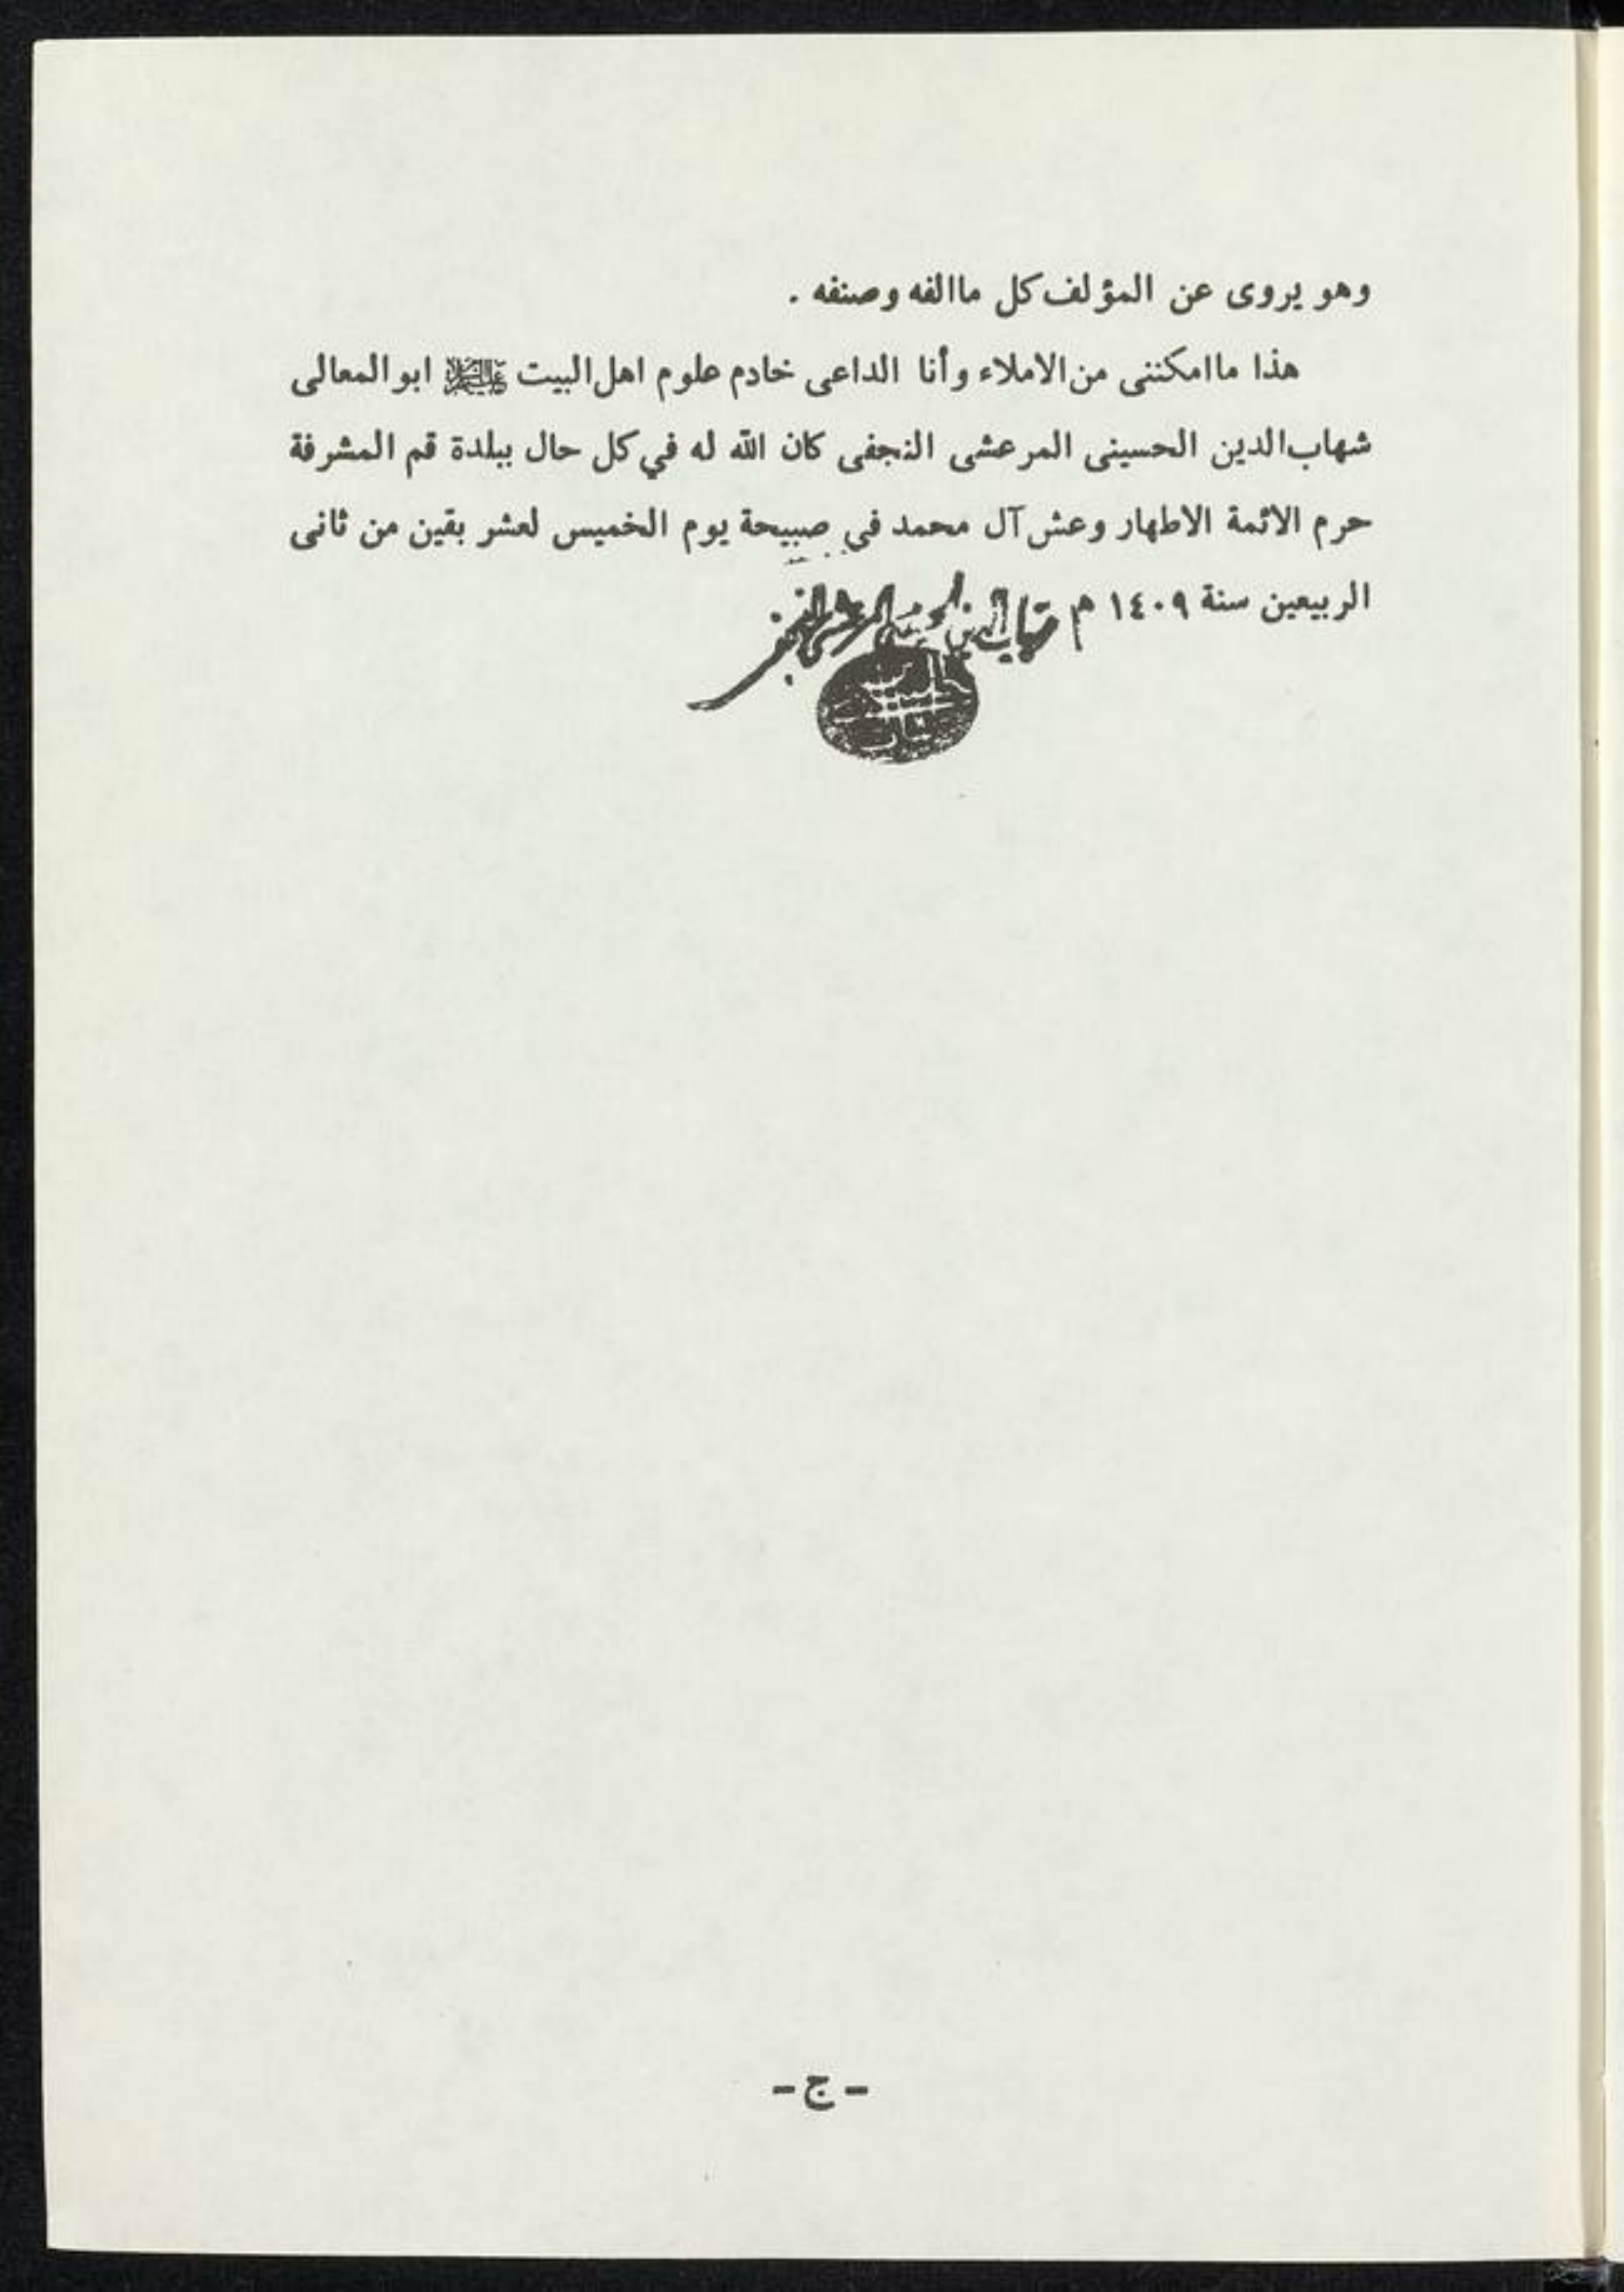 وهو يروى عن المؤلف كل ماالفه وصنفه .
هذا ماامكننى من الاملاء وأنا الداعى خادم علوم اهل البيت عليهم السلام ابو المعالى
شهاب الدين الحسينى المرعشى النجفى كان الله له في كل حال ببلدة قم المشرفة
حرم الائمة الاطهار وعش آل محمد في صبيحة يوم الخميس لعشر بقين من ثانى
الربيعين سنة ١٤٠٩ ه
شهاب الدين الحسينى المرعشى النجفى
- ج -